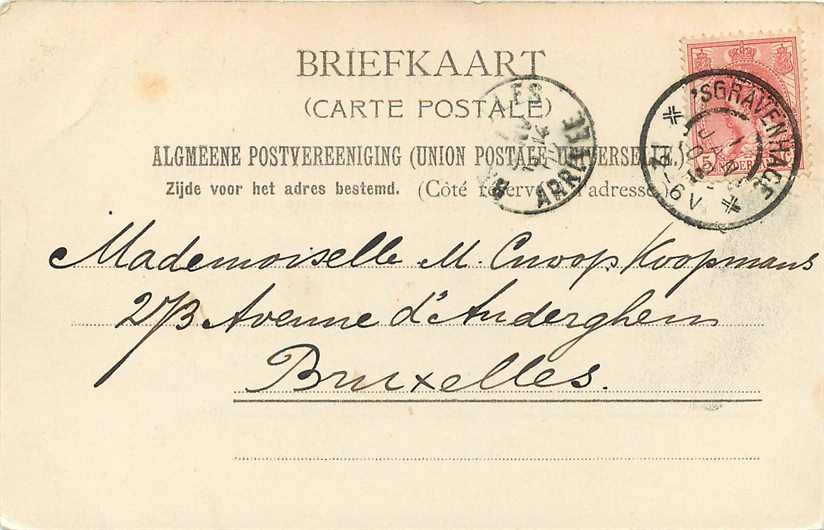 BRIEFKAART
(CARTE POSTALE)
ALGMEENE POSTVEREENIGING (UNION POSTALE UNIVERSELLE.)
Zijde voor het adres bestemd. (Côté réservé à l'adresse.)
'SGRAVENHAGE
1 JAN
5 NEDERLAND
Mademoiselle M. Cnoop Koopmans
273 Avenue d'Auderghem
Bruxelles.